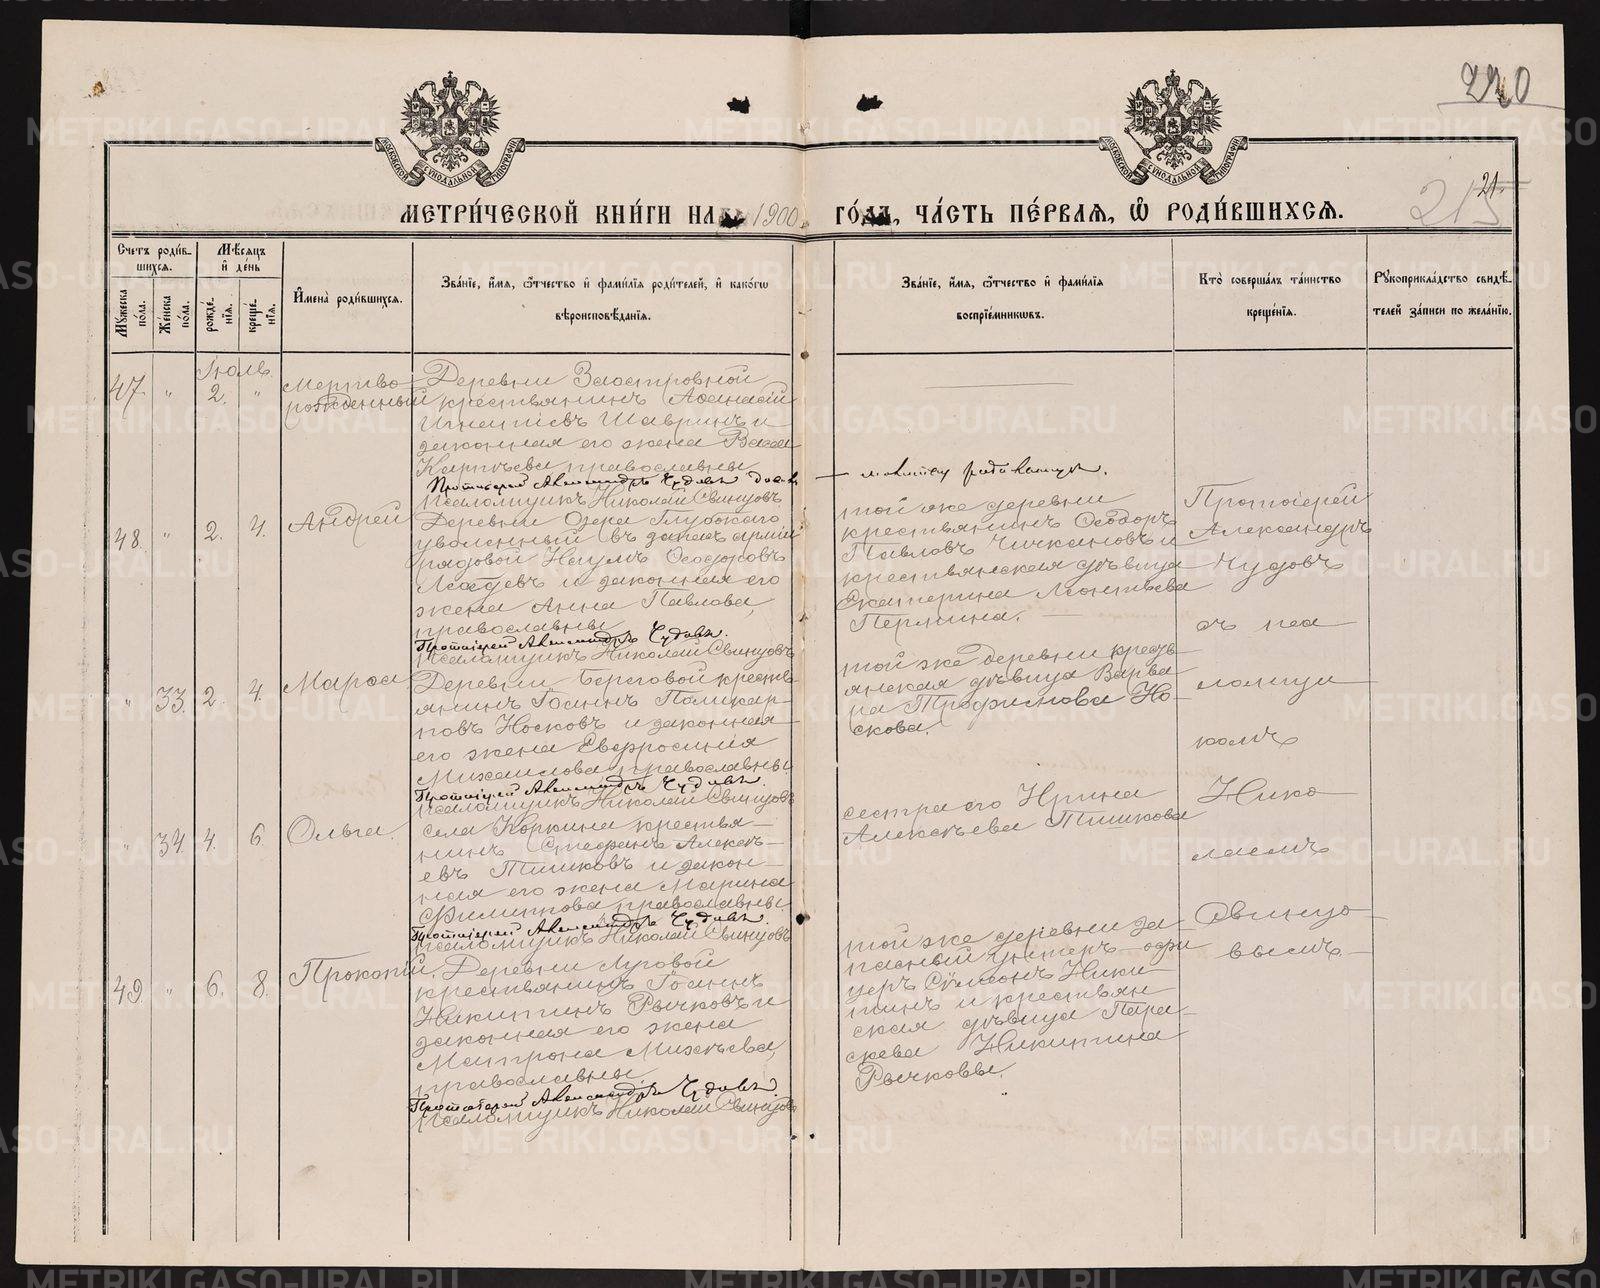 220
215
21.
МОСКОВСКОЙ СУНОДАЛЬНОЙ ТИПОГРАФІИ
МОСКОВСКОЙ СУНОДАЛЬНОЙ ТИПОГРАФІИ
МЕТРИ́ЧЕСКОЙ КНИ́ГИ НА 1900 ГО́ДЪ, ЧА́СТЬ ПЕ́РВАЯ, Ѡ РОДИ́ВШИХСЯ.
Счетъ роди́в-
шихся.
Мꙋжеска
по́ла.
Же́нска
по́ла.
Мѣсяцъ
и҆ де́нь
рожде́-
нія.
креще́-
нія.
И҆мена̀ роди́вшихся.
Зва́ніе, и҆́мя, ѻ҆́тчество и҆ фами́лія роди́телей, и҆ како́гѡ
вѣроисповѣ́данія.
Зва́ніе, и҆́мя, ѻ҆́тчество и҆ фами́лія
воспріе́мниковъ.
Кто̀ соверша́лъ та́инство
креще́нія.
Рꙋкоприкла́дство свидѣ́-
телей за́писи по жела́нію.
Іюль
47. " 2. "
Мертво-
рожденный
Деревни Заостровной
крестьянинъ Аѳанасій
Игнатіевъ Шавринъ и
законная его жена Васса
Карпѣева, православны
Протоіерей Александръ Чудовъ
Псаломщикъ Николай Свинцовъ
48. " 2. 4.
Андрей
Деревни Озера Глубокаго
уволенный въ запас арміи
рядовой Наумъ Ѳеодоровъ
и законная его
жена Анна Павлова,
православны
Протоіерей Александръ Чудовъ.
Псаломщикъ Николай Свинцовъ
той же деревни
крестьянинъ Ѳеодоръ
Павловъ Чичкановъ и
крестьянская дѣвица
Екатерина Леонтьева
Пермина.
Протоіерей
Александръ
Чудовъ
съ пса
ломщи
комъ
Нико
лаемъ
Свинцо-
вымъ.
" 33. 2. 4.
Марѳа
Деревни Береговой крестья-
янинъ Іоаннъ Поликар-
повъ Носковъ и законная
его жена Евфросинія
Михаилова, православны.
Протоіерей Александръ Чудовъ.
Псаломщикъ Николай Свинцовъ
той же деревни кресть-
янская дѣвица Варва
ра Трофимова Но-
скова.
" 34. 4. 6
Ольга.
села Коркина крестья-
нинъ Стефанъ Алексѣ-
евъ Тишковъ и закон-
ная его жена Марина
Филиппова, православны
Протоіерей Александръ Чудовъ.
Псаломщикъ Николай Свинцовъ
сестра его Ирина
Алексѣева Тишкова
49. " 6. 8.
Прокопій.
Деревни Луговой
крестьянинъ Іоаннъ
Никитинъ Рычковъ и
законная его жена
Матрона Михѣева,
православны
Протоіерей Александръ Чудовъ.
Псаломщикъ Николай Свинцовъ
той же деревни за-
пасный унтеръ-офи
церъ Сѵмеонъ Ники-
тинъ и крестьян
ская дѣвица Пара-
скева Никитина
Рычковы.
METRIKI.GASO-URAL.RU